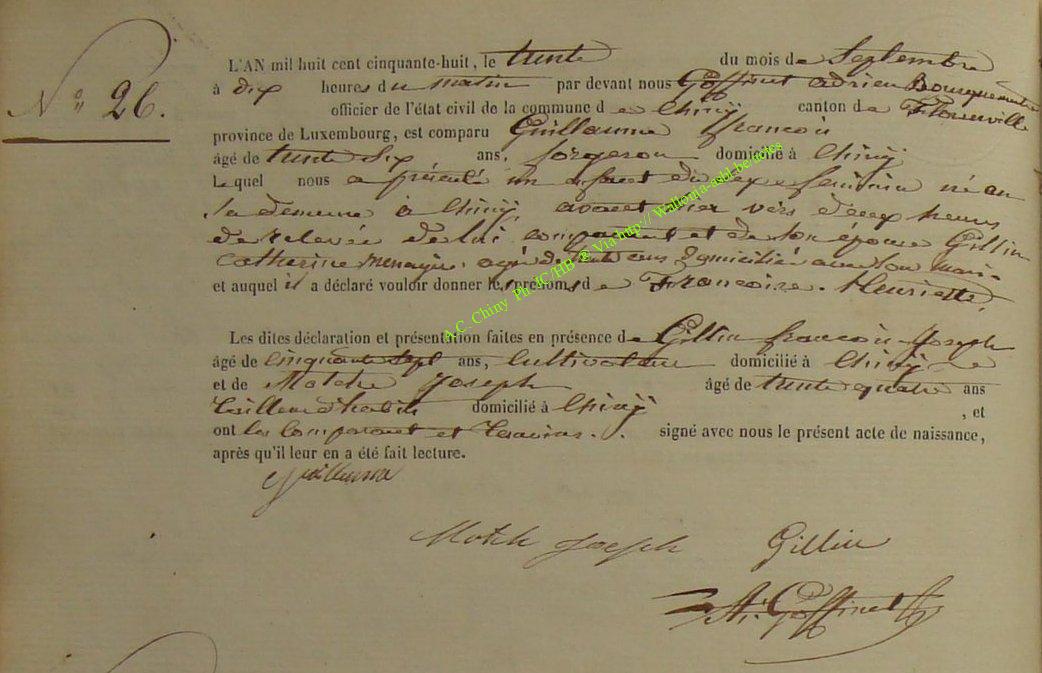 N° 26.
L'AN mil huit cent cinquante-huit, le trente du mois de Septembre
à dix heures du matin par devant nous Goffinet adrien Bourguemestre
officier de l'état civil de la commune de Chiny canton de Florenville
province de Luxembourg, est comparu Guillaume françois
âgé de trente six ans, forgeron domicilié à Chiny
Lequel nous a présenté un enfant du sexe feminin né en
sa demeure à Chiny, avant hier vers deux heures
de relevée de lui comparant et de son épouse Gillin
Catherine menagère, agée de trente ans domiciliée avec son mari
et auquel il a déclaré vouloir donner les prénoms de Françoise. Henriette.
Les dites déclaration et présentation faites en présence de Gillin françois Joseph
âgé de cinquante sept ans, Cultivateur domicilié à Chiny
et de Motch Joseph âgé de trente quatre ans
tailleur d'habits domicilié à Chiny , et
ont les Comparant et témoins. signé avec nous le présent acte de naissance,
après qu'il leur en a été fait lecture.
Guillaume
Motch Joseph Gillin
A. Goffinet
A.C. Chiny Ph JC/HB @ Via http://Wallonia-asbl.be/actes